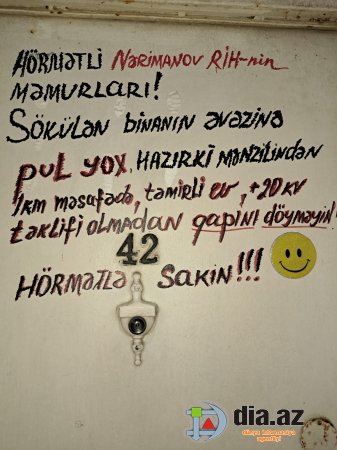 HÖRMƏTLİ NƏRİMANOV RİH-nin
MƏMURLARI!
SÖKÜLƏN BİNANIN ƏVƏZİNƏ
PUL YOX, HAZIRKI MƏNZİLİNDƏN
1KM MƏSAFƏDƏ, TƏMİRLİ EV, +20 KV
TƏKLİFİ OLMADAN QAPINI DÖYMƏYİN!
42
HÖRMƏTLƏ SAKİN!!!
dia.az
dünya informasiya
agentliyi